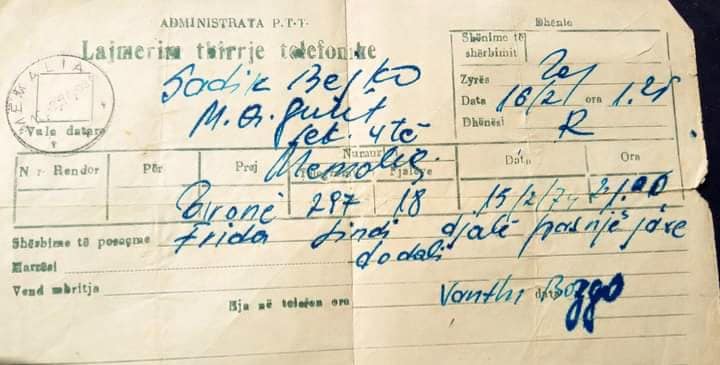 ADMINISTRATA P.T.T.
Dhënie
Lajmërim thirrje telefonike
Shënime të shërbimit
MEMALIAJ
Vale datare
Sadik Bejko
M. A. Gjikët
Memaliaj
Zyrës
Data 16/2/ ora 1.25
Dhënësi R
Nr. Rendor Për Prej Numuri Fjalëve Data Ora
Tironë 297 18 15/2/74 21.00
Shërbime të posaçme Frida lindi djalë pas një jave
Marrësi dodali
Vend mbritja
Eja në telefon ora data
Vanthi Bozgo